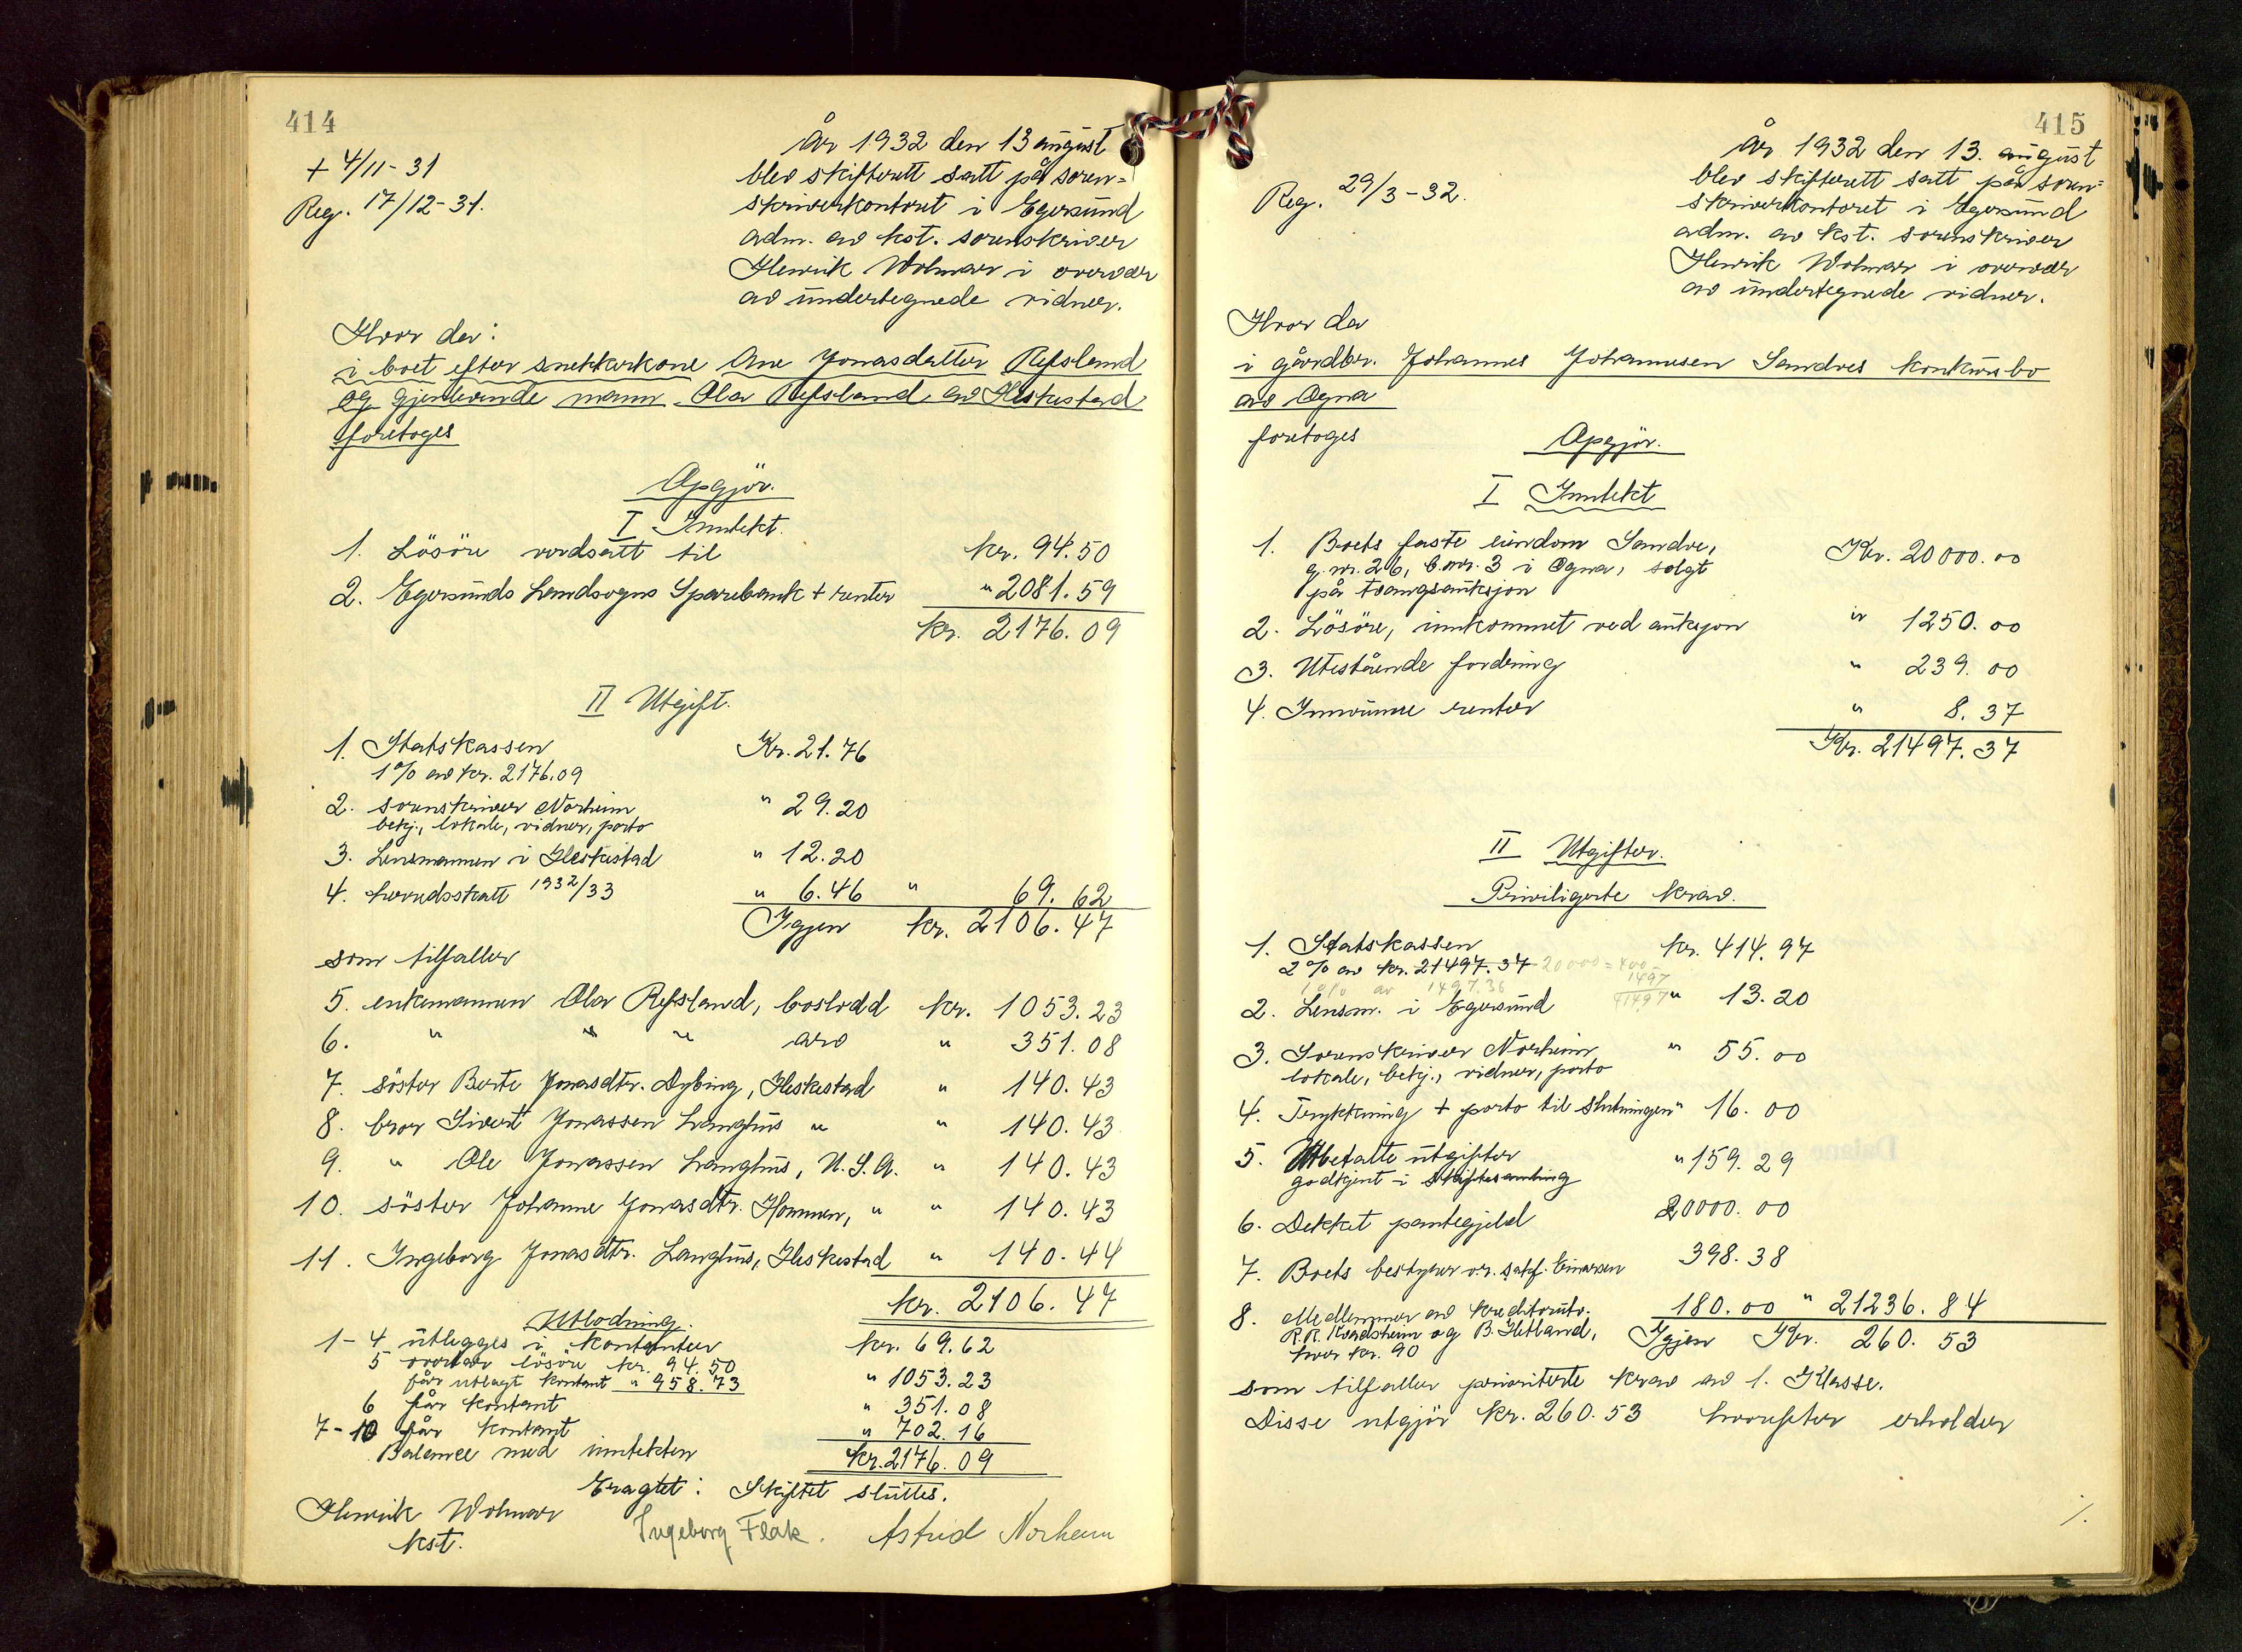 414
+ 4/11-31
Reg. 17/12-31.
År 1932 den 13 august
blev skifterett satt på soren=
skriverkontoret i Egersund
adm. av kst. sorenskriver
Henrik Wolmar i overvær
av undertegnede vidner.
Hvor da:
i boet efter snekkerkone Ane Jonasdatter Refsland
og gjenlevende mann Ola Refsland av Heskestad
foretoges
Opgjör.
I Inntekt.
1. Lösöre verdsatt til kr. 94.50
2. Egersunds Landsogns Sparebank + renter " 2081.59
kr. 2176.09
II Utgift.
1. Statskassen Kr. 21.76
1% av kr. 2176.09
2. sorenskriver Norheim " 29.20
bekj., lokale, vidner, porto
3. Lensmannen i Heskestad " 12.20
4. herredsskatt 1932/33 " 6.46 " 69.62
Igjen kr. 2106.47
som tilfaller
5. enkemannen Ola Refsland, boslodd kr. 1053.23
6. " " " arv " 351.08
7. söster Berte Jonasdtr. Dybing, Heskestad " 140.43
8. bror Sivert Jonassen Langhus " " 140.43
9. " Ole Jonassen Langhus, U.S.A. " 140.43
10. söster Johanne Jonasdtr. Hommen, " " 140.43
11. Ingeborg Jonasdtr. Langhus, Heskestad " 140.44
kr. 2106.47
Utlodning.
1-4 utlegges i kontanter kr. 69.62
5 overtar lösöre kr. 94.50
får utlagt kontant " 958.73 " 1053.23
6 får kontant " 351.08
7-10 får kontant " 702.16
Balanse med inntekten kr. 2176.09
Eragtet: Skiftet sluttes.
Henrik Wolmar
kst.
Ingeborg Flak. Astrid Norheim
415
Reg. 29/3-32.
År 1932 den 13. august
blev skifterett satt på soren=
skriverkontoret i Egersund
adm. av kst. sorenskriver
Henrik Wolmar i overvær
av undertegnede vidner.
Hvor da
i gårdbr. Johannes Johannesen Sandves konkursbo
av Ogna
foretoges
Opgjör.
I Inntekt
1. Boets faste eiendom Sandve,
g.nr. 26, b.nr. 3 i Ogna, solgt
på tvangsauksjon Kr. 20000.00
2. Lösöre, innkommet ved auksjon " 1250.00
3. Utestående fordring " 239.00
4. Innvunne renter " 8.37
Kr. 21497.37
II Utgifter.
Priviligerte krav.
1. Statskassen kr. 414.97
2% av kr. 21497.37 20000 = 400
1% av 1497.36 1497
41497
2. Lensm. i Egersund " 13.20
3. Sorenskriver Norheim " 55.00
lokale, bekj., vidner, porto
4. Trykkning + porto til slutningen " 16.00
5. Utbetalte utgifter " 159.29
godkjent i skiftesamling
6. Dekket pantegjeld 20000.00
7. Boets bestyrer o.r. sakf. Einarsen 398.38
8. Medlemmer av kreditorutv.
R.R. Kvadsheim og B. Hetland,
hver kr. 90 180.00 " 21236.84
Igjen Kr. 260.53
som tilfaller prioriterte krav av 1. Klasse.
Disse utgjör kr. 260.53 hvorefter erholder
/.